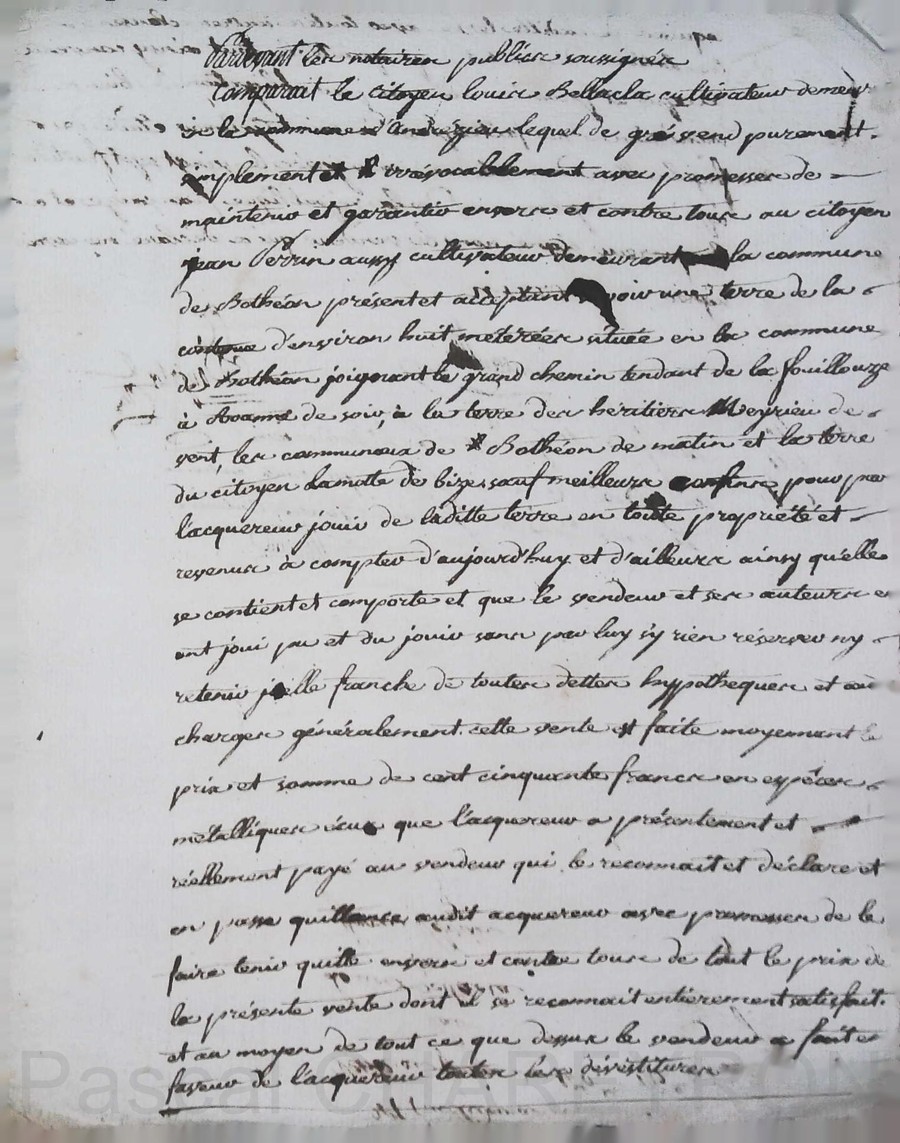 Pardevant les notaires publics soussignés
Comparait le citoyen louis Bellacla cultivateur demeur
de la commune d'andrézieu lequel de gré vend purement.
simplement et irrévocablement avec promesses de
maintenir et garantir envers et contre tous au citoyen
jean Perrin aussy cultivateur demeurant la commune
de Bothéon présent et acceptant voir une terre de la
contenue d'environ huit méterées située en la commune
de Bothéon joignant le grand chemin tendant de la fouillouze
à de soir, à la terre des heritiers Meyrieu de
vent, les communaux de Bothéon de matin et la terre
du citoyen Lamotte de bize, sauf meilleurs confins, pour par
l'acquereur jouir de laditte terre en toute propriété et
revenus à compter d'aujourd'huy et d'ailleurs ainsy qu'elle
se contient et comporte et que le vendeur et ses auteurs en
ont joui pu et du jouir sans par luy s'y rien réserver ny
retenir jcelle franche de toutes dettes hypotheques et
charges généralement. cette vente est faite moyennant le
prix et somme de cent cinquante francs en espéces
métalliques écus que l'acquereur a présentement et
réellement payé au vendeur qui le reconnait et déclare et
en passe quittance audit acquereur avec promesses de le
faire tenir quitte envers et contre tous de tout le prix de
la présente vente dont il se reconnait entièrement satisfait.
et au moyen de tout ce que dessus le vendeur a fait en
faveur de l'acquereur toutes les dévestitures
Pascal CHARETRON